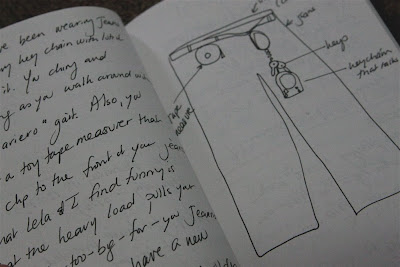 been wearing jeans
key chain with
it. You ching and
as you walk around with
gait. Also, you
a toy tape measurer that
clip to the front of your jeans
that lela & I find funny is
at the heavy load pulls your
too-by-far-your jeans
have a new
jeans
keys
keychain
that
tape
measure